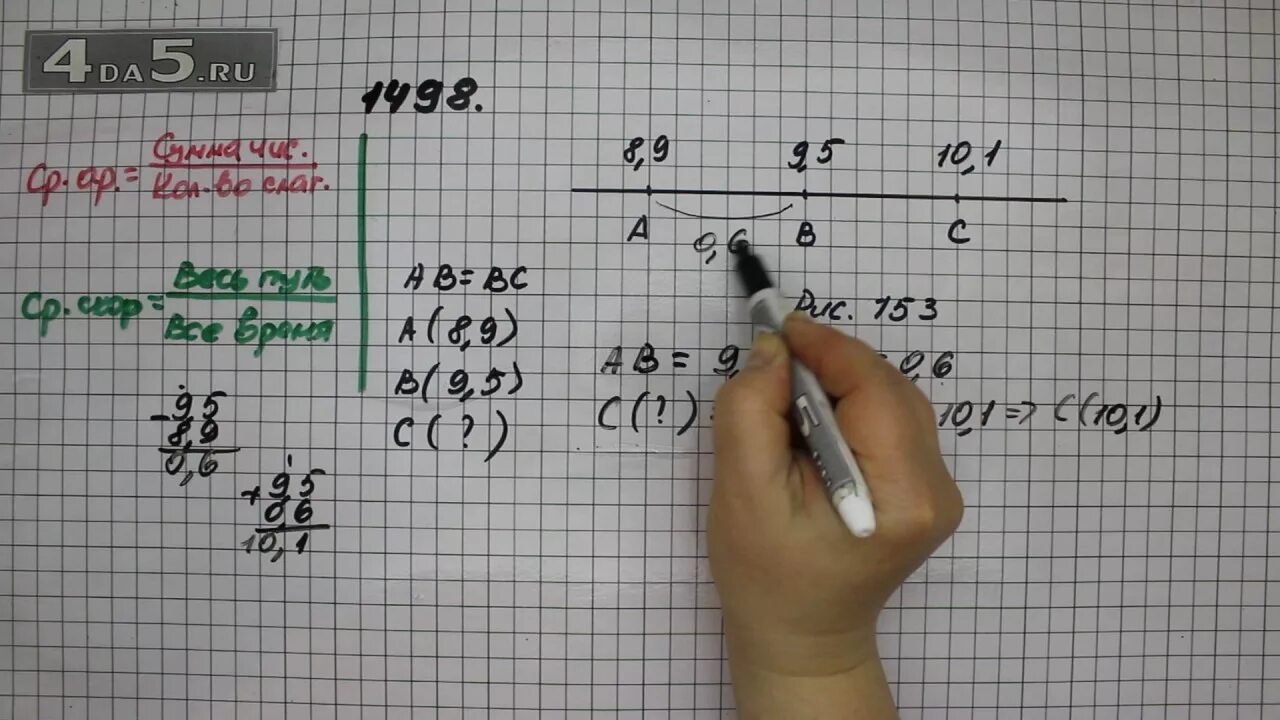 4DA5.RU
1498.
Ср. ар. = Сумма чис. / Кол-во слаг.
Ср. скор = Весь путь / Все время
9,5
- 8,9
0,6
+ 9,5
0,6
10,1
AB = BC
A (8,9)
B (9,5)
C (?)
8,9 9,5 10,1
A 0,6 B C
Рис. 153
AB = 9, 0,6
C (?) 10,1 => C (10,1)